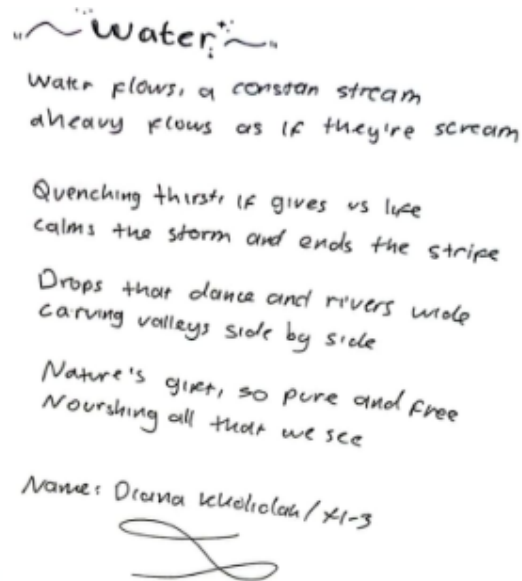 "~Water~"
Water flows, a constan stream
aheavy flows as if they're scream
Quenching thirst, if gives us life
calms the storm and ends the strife
Drops that dance and rivers wide
carving valleys side by side
Nature's gift, so pure and free
Nourshing all that we see
Name: Diana / XI-3